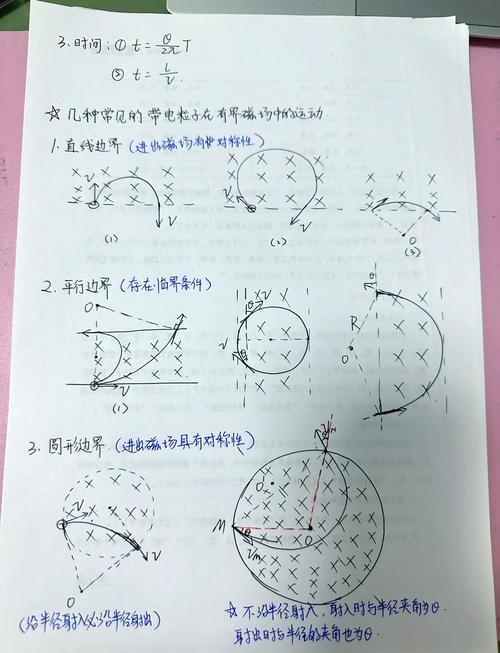 3. 时间: ① t = θ/2π T
② t = L/V.
☆ 几种常见的带电粒子在有界磁场中的运动
1. 直线边界 (进出磁场有对称性)
V
V
(1)
V
V
(2)
O
(3)
2. 平行边界 (存在临界条件)
O
V
(1)
θ
V
V
θ
θ
R
O
3. 圆形边界. (进出磁场具有对称性)
V
V
O
(沿半径射入必沿半径射出)
θ
N
O'
M
θ
Vm
O
☆ 不沿半径射入, 射入时与半径夹角为θ.
射出时与半径的夹角也为θ.